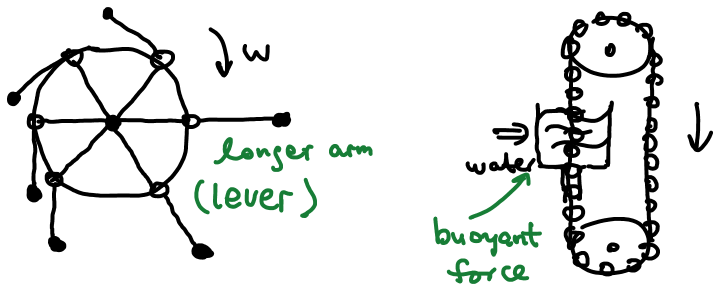 w
longer arm
(lever)
water
buoyant
force